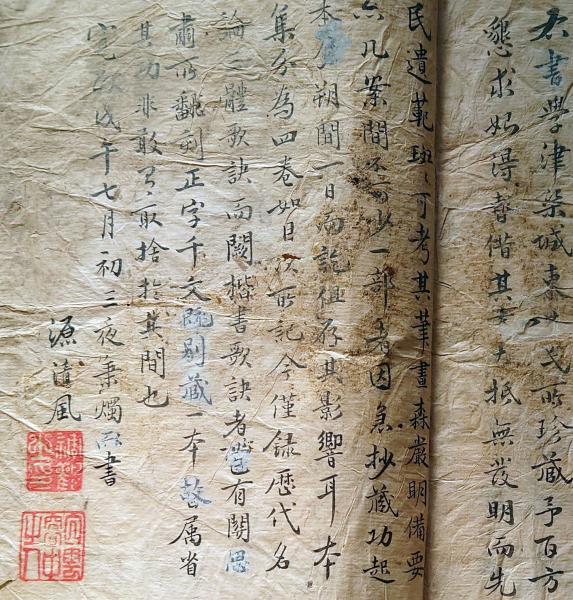 右書學津梁城東㦮所珍藏予百方
懇求始得替借其事大抵無發明而先
民遺範班〻可考其筆畫森嚴明備要
亦几案間不可少一部者因急抄藏功起
本月朔間一日而訖但存其影響耳本
集分為四卷如目次所記今僅錄歷代名
論二體歌訣而闕楷書歌訣者嘗有關思
肅所翻刻正字千文既別藏一本故属省
其功非敢有取捨於其間也
寛政戊午七月初三夜秉燭書
源清風